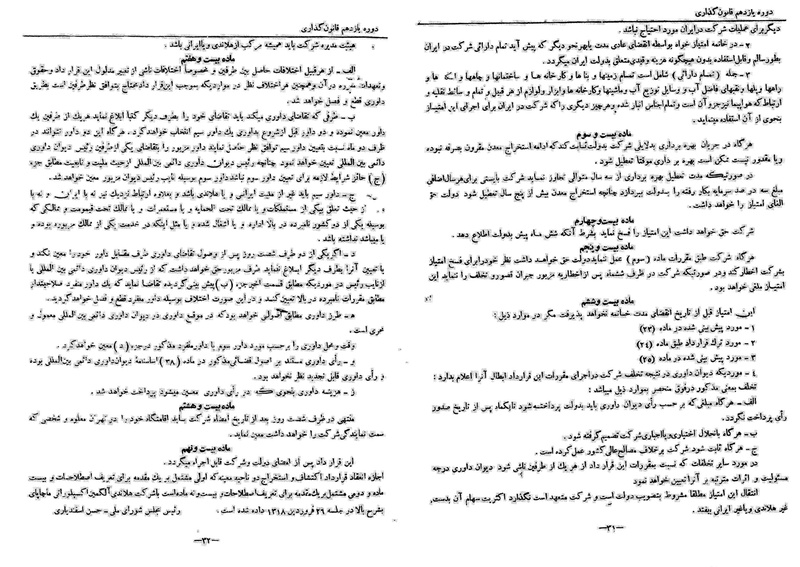 دوره یازدهم قانون‌گذاری
دیگر برای عملیات شرکت در ایران مورد احتیاج نباشد .
۲ - در خاتمه امتیاز خواه بواسطه انقضای عادی مدت یا بهر نحو دیگر که پیش آید تمام دارائی شرکت در ایران
بطور سالم و قابل استفاده بدون هیچگونه هزینه و قیدی متعلق بدولت ایران میگردد .
۳ - جمله ( تمام دارائی ) شامل است تمام زمینها و بنا ها و کارخانه ها و ساختمانها و چاهها و
راهها و پلها و نقبهای فاضل آب و وسایل توزیع آب و ماشینها و کارخانه ها و ابزار و لوازم از هر قبیل و تمام وسائط نقلیه و
ارتباط که هواپیما نیز جزو آن است و تمام اجناس انبار شده و هر چیز دیگری را که شرکت در ایران برای اجرای این امتیاز
بنحوی از آن استفاده مینماید .
ماده بیست و سوم
هرگاه در جریان بهره برداری بدلایلی شرکت بدولت ثابت کند که ادامه استخراج معدن مقرون بصرفه نبوده
و یا مقدور نیست ممکن است بهره برداری موقتاً تعطیل شود .
در صورتیکه مدت تعطیل بهره برداری از سه سال متوالی تجاوز نماید شرکت بایستی برای هر سال اضافی
مبلغ سه در صد سرمایه بکار رفته را بدولت بپردازد چنانچه استخراج معدن بیش از پنج سال تعطیل شود دولت حق
الغای امتیاز را خواهد داشت .
ماده بیست و چهارم
شرکت حق خواهد داشت این امتیاز را فسخ نماید بشرط آنکه شش ماه پیش بدولت اطلاع دهد .
ماده بیست و پنجم
هرگاه شرکت طبق مقررات ماده ( سوم ) عمل ننماید دولت حق خواهد داشت نظر خود را برای فسخ امتیاز
بشرکت اخطار کند و در صورتیکه شرکت در ظرف ششماه پس از اخطاریه مزبور جبران قصور و تخلف را ننماید این
امتیاز ملغی خواهد بود .
ماده بیست و ششم
این امتیاز قبل از تاریخ انقضای مدت خاتمه نخواهد پذیرفت مگر در موارد ذیل :
۱ - مورد پیش بینی شده در ماده (۲۳)
۲ - مورد ترک قرارداد طبق ماده (۲۴)
۳ - مورد پیش بینی شده در ماده (۲۵)
۴ - موردیکه دیوان داوری در نتیجه تخلف شرکت در اجرای مقررات این قرارداد ابطال آنرا اعلام بدارد :
تخلف بمعنی مذکور در فوق منحصر بموارد ذیل میباشد :
الف - هرگاه مبلغی که بر حسب رأی دیوان داوری باید بدولت پرداخته شود تا یکماه پس از تاریخ صدور
رأی پرداخت نگردد .
ب - هرگاه بانحلال اختیاری و یا اجباری شرکت تصمیم گرفته شود .
ج - هرگاه ثابت شود شرکت بر خلاف مصالح عالی کشور عمل کرده است .
در مورد سایر تخلفات که نسبت بمقررات این قرارداد از هر یک از طرفین ناشی شود دیوان داوری درجه
مسئولیت و اثرات مترتبه بر آنرا تعیین خواهد نمود
انتقال این امتیاز مطلقاً مشروط بتصویب دولت است و شرکت متعهد است نگذارد اکثریت سهام آن بدست
غیر هلاندی و یا غیر ایرانی بیفتد .
—۳۱—
دوره یازدهم قانون گذاری
هیئت مدیره شرکت باید همیشه مرکب از هلاندی و یا ایرانی باشد .
ماده بیست و هفتم
الف - از هر قبیل اختلافات حاصل بین طرفین و خصوصاً اختلافات ناشی از تعبیر مدلول این قرارداد و حقوق
و تعهدات مقرره در آن و همچنین هر اختلاف نظر در مواردیکه بموجب این قرارداد محتاج بتوافق نظر طرفین است بطریق
داوری قطع و فصل خواهد شد .
ب - طرفی که تقاضای داوری میکند باید تقاضای خود را بطرف دیگر کتباً ابلاغ نماید هر یک از طرفین یک
داور معین نموده و دو داور قبل از شروع بداوری یک داور سیم انتخاب خواهند کرد . هرگاه این دو داور نتوانند در
ظرف دو ماه نسبت بتعیین داور سیم توافق نظر حاصل نمایند داور مزبور را بتقاضای یکی از طرفین رئیس دیوان
دائمی بین المللی تعیین خواهد نمود چنانچه رئیس دیوان داوری دائمی بین المللی از حیث ملیت و تابعیت مطابق جزء
( ج ) حائز شرایط لازمه برای تعیین داور سوم نباشد داور سوم بوسیله نایب رئیس دیوان مزبور معین خواهد شد .
ج - داور سیم باید غیر از ملیت ایرانی و یا هلاندی باشد و بعلاوه ارتباط نزدیک نیز نه با ایران و نه با
از حیث تعلق بیکی از مستملکات و یا ممالک تحت الحمایه و یا مستعمرات و یا ممالک تحت قیمومت و ممالکی که
بوسیله یکی از دو کشور نامبرده در بالا اداره و یا اشغال شده و یا مثل اینکه در خدمت یکی از ممالک مزبوره بوده و
یا میباشد نداشته باشد .
د - اگر یکی از دو طرف شصت روز پس از وصول تقاضای داوری طرف مقابل داور خود را معین نکند و
یا تعیین آنرا بطرف دیگر ابلاغ ننماید طرف مزبور حق خواهد داشت که از رئیس دیوان داوری دائمی بین المللی یا
از نایب رئیس در موردیکه مطابق قسمت اخیر جزء ( ب ) پیش بینی گردیده تقاضا نماید که یک داور منفرد صلاحیتدار
مطابق مقررات نامبرده در بالا تعیین کند و در این صورت اختلاف بوسیله داور منفرد قطع و فصل خواهد گردید .
ه - طرز داوری مطابق اصولی خواهد بود که در موقع داوری در دیوان داوری دائمی بین المللی معمول و
مجری است .
وقت و محل داوری را بر حسب مورد داور سوم یا داور منفرد مذکور در جزء ( د ) معین خواهد کرد .
و - رأی داوری مستند بر اصول قضائی مذکور در ماده (۳۸) اساسنامه دیوان داوری دائمی بین المللی بوده
و رأی داوری قابل تجدید نظر نخواهد بود .
ز - هزینه داوری بنحوی که در رأی داوری معین میشود پرداخت خواهد شد .
ماده بیست و هشتم
منتهی در ظرف شصت روز بعد از تاریخ امضاء شرکت باید اقامتگاه خود را در تهران معلوم و شخصی که
سمت نمایندگی شرکت را خواهد داشت معین نماید .
ماده بیست و نهم
این قرارداد پس از امضای دولت و شرکت قابل اجراء میگردد .
اجازه انعقاد قرارداد اکتشاف و استخراج دو ناحیه معینه که اولی مشتمل بر یک مقدمه برای تعریف اصطلاحات و بیست
ماده و دومی مشتمل بر یک مقدمه برای تعریف اصطلاحات و بیست و نه ماده است با شرکت هلاندی آلگمین اکسپلوراتی ماچاپای
بشرح بالا در جلسه ۲۹ فروردین ۱۳۱۸ داده شده است . رئیس مجلس شورای ملی - حسن اسفندیاری
—۳۲—